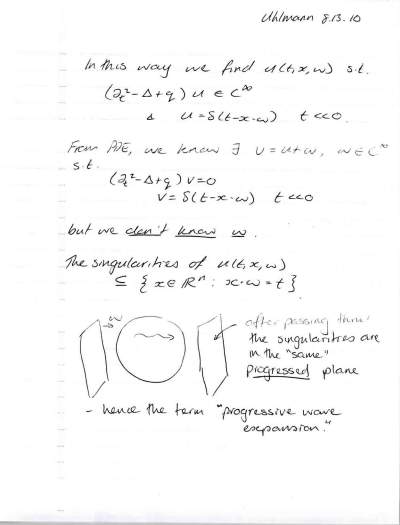 Uhlmann 8.13.10
In this way we find u(t,x,ω) s.t.
(∂t²-Δ+q) u ∈ C∞
& u=δ(t-x·ω) t<<0.
From PDE, we know ∃ v=u+w, w∈C∞
s.t.
(∂t²-Δ+q) v=0
v=δ(t-x·ω) t<<0
but we don't know w.
The singularities of u(t,x,ω)
⊆ {x∈ℝⁿ : x·ω=t}
ω
after passing thru
the singularities are
in the "same"
progressed plane
- hence the term "progressive wave
expansion."